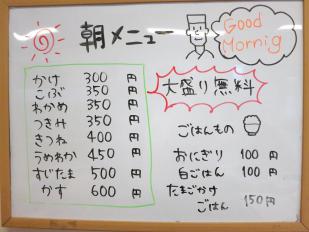 朝メニュー
Good
Mornig
かけ 300 円
こぶ 350 円
わかめ 350 円
つきみ 350 円
きつね 400 円
うめわか 450 円
すじたま 500 円
かす 600 円
大盛り無料
ごはんもの
おにぎり 100 円
白ごはん 100 円
たまごかけ
ごはん 150 円